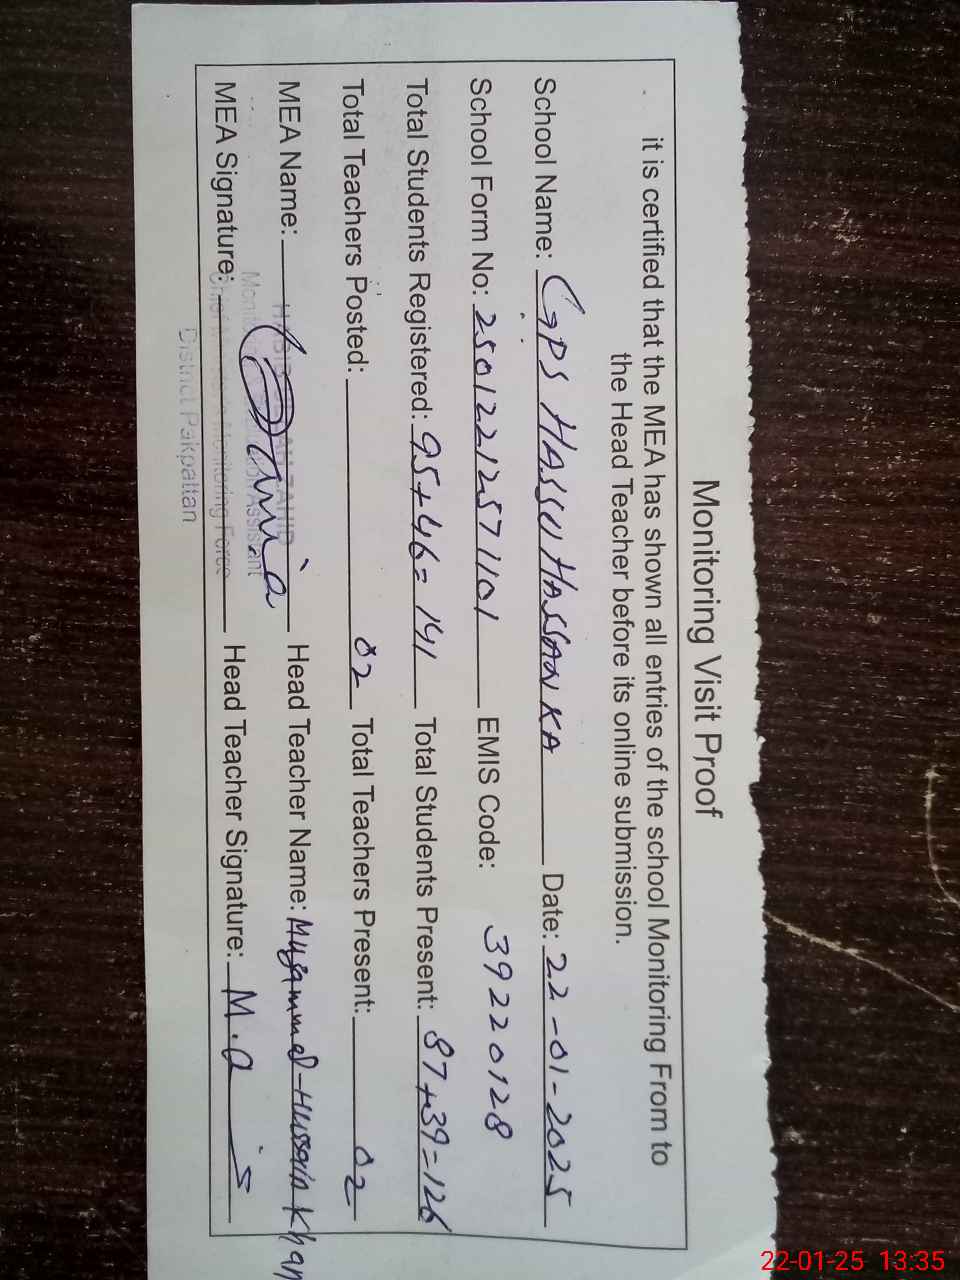 Monitoring Visit Proof
it is certified that the MEA has shown all entries of the school Monitoring From to
the Head Teacher before its online submission.
School Name: GPS HASSU HASSAN KA Date: 22-01-2025
School Form No: 25012212571101 EMIS Code: 39220128
Total Students Registered: 95+46= 141 Total Students Present: 87+39=126
Total Teachers Posted: 02 Total Teachers Present: 02
MEA Name: Head Teacher Name: Muzammal Hussain Khan
MEA Signature: Head Teacher Signature:
District Pakpattan
22-01-25 13:35